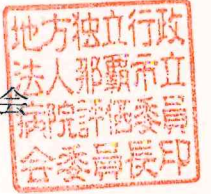 地方独立行政
法人那覇市立
病院評価委員
会委員長印
会